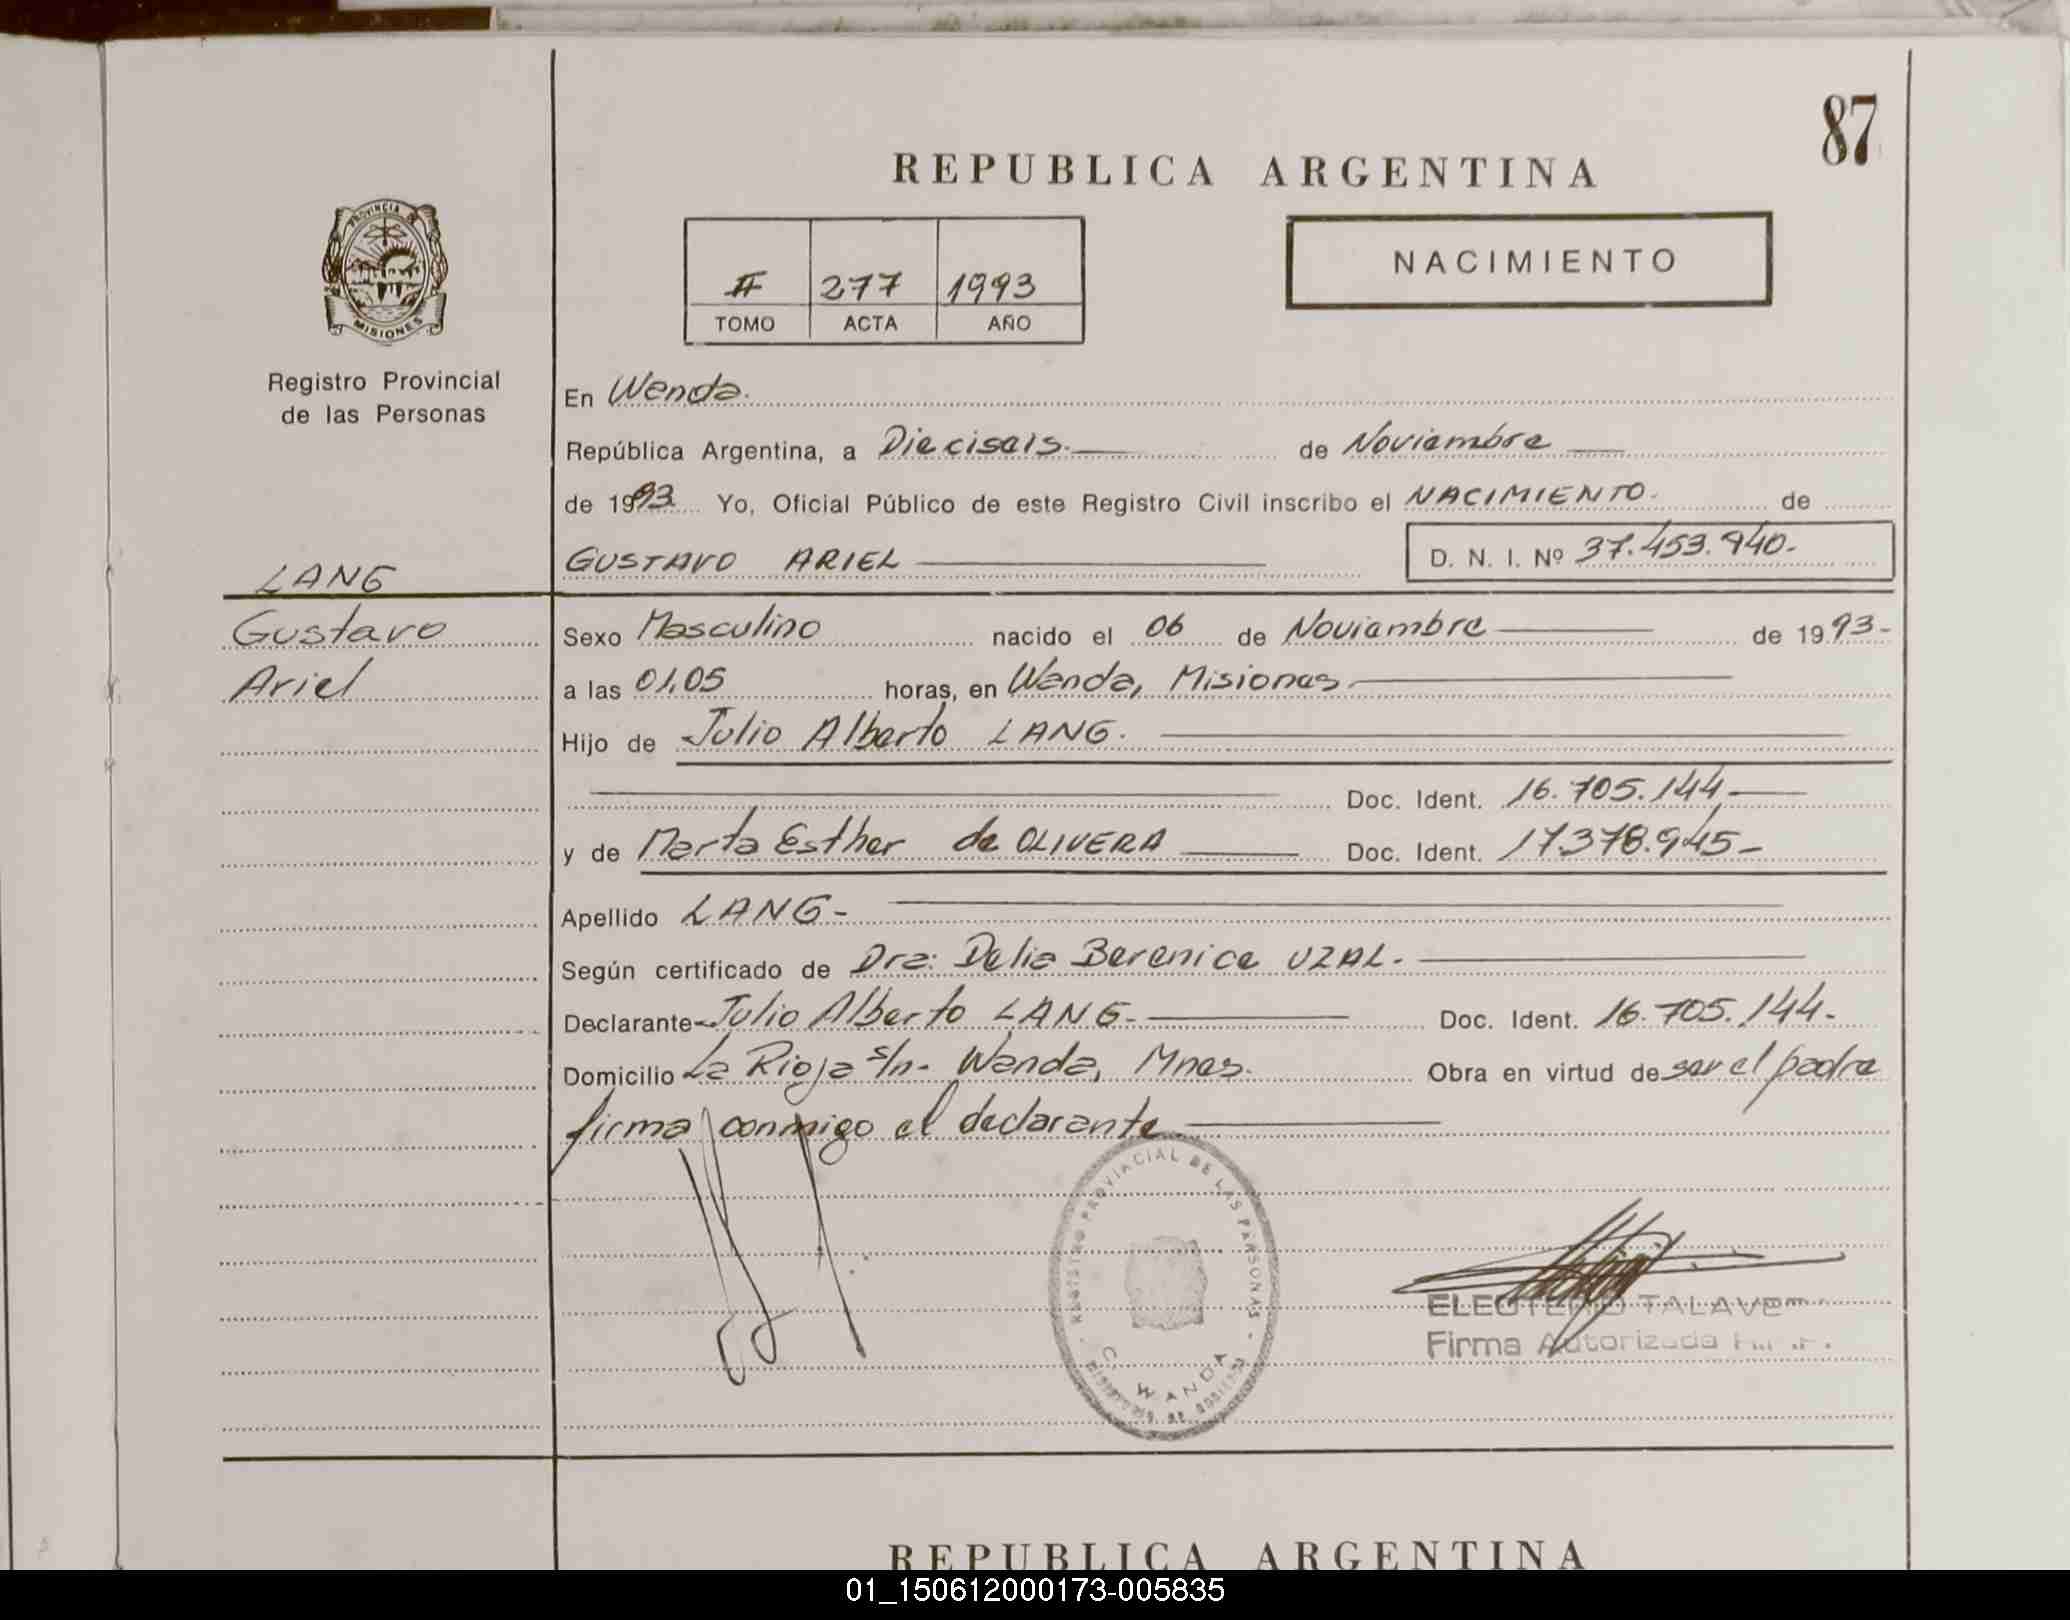 87
REPUBLICA ARGENTINA
NACIMIENTO
II 277 1993
TOMO ACTA AÑO
PROVINCIA DE
MISIONES
Registro Provincial
de las Personas
En Wanda.
República Argentina, a Dieciseis. de Noviembre
de 1993 Yo, Oficial Público de este Registro Civil inscribo el NACIMIENTO. de
GUSTAVO ARIEL D. N. I. Nº 37.453.940.-
LANG
Gustavo
Ariel
Sexo Masculino nacido el 06 de Noviembre de 1993-
a las 01,05 horas, en Wanda, Misiones
Hijo de Julio Alberto LANG.
Doc. Ident. 16.705.144
y de Marta Esther de OLIVERA Doc. Ident. 17.378.945-
Apellido LANG-
Según certificado de Dra: Delia Berenice UZAL.
Declarante Julio Alberto LANG- Doc. Ident. 16.705.144.-
Domicilio La Rioja s/n- Wanda, Mnes. Obra en virtud de ser el padre
firma conmigo el declarante
REGISTRO PROVINCIAL DE LAS PERSONAS
WANDA
ELEUTERIO TALAVE
Firma Autorizada
REPUBLICA ARGENTINA
01_150612000173-005835